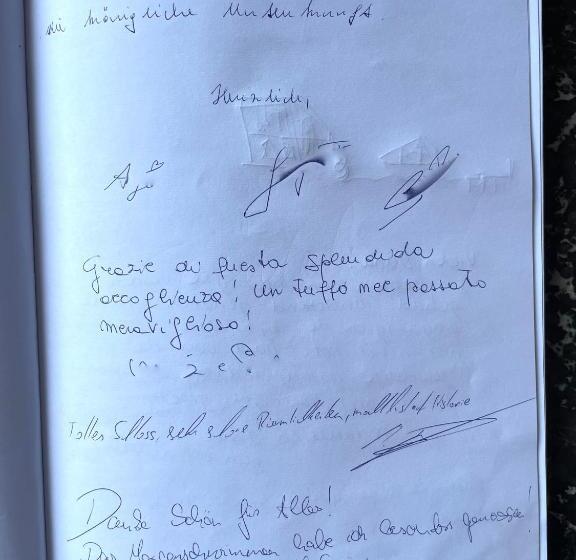 königliche Unterkunft.
Herzlich,
Grazie di questa splendida
accoglienza! Un tuffo nel passato
meraviglioso!
Tolles Schloss, sehr schöne Räumlichkeiten, macht Lust auf Historie
Danke Schön für Alles!
habe ich besonders genossen!